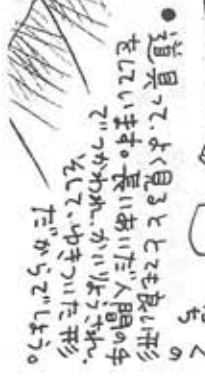 くの
ち
●道具って、よく見るととても良い形
をしています。長いあいだ人間の手
でつかわれ、かいりょうされ、
そして、いきついた形
だからでしょう。